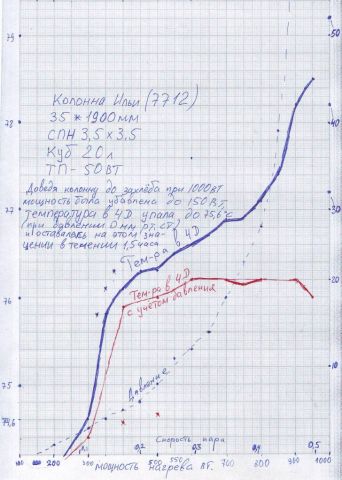 79
50
Колонна Ильи (7712)
35 * 1900мм
СПН 3,5 х 3,5
Куб 20л
ТП - 50 ВТ
78
40
Доведя колонну до захлёба при 1000вт
мощность была убавлена до 150 ВТ
температура в 4D упала до 75,6°С
(при давлении 0 мм рт. ст.)
и оставалась на этом зна-
чении в течении 1,5 часа
77
30
Тем-ра в 4D
76
20
Тем-ра в 4D
с учётом давления
Давление
75
10
74,6
Скорость пара
0,1
0,2
0,3
0,4
0,5
100
200
300
400
500
550
600
700
800
900
1000
мощность нагрева вт.